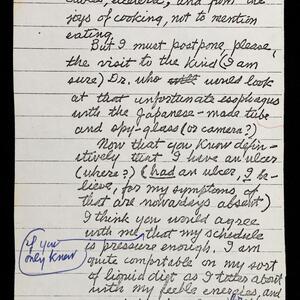 and from the
joys of cooking, not to mention
eating.
But I must postpone, please,
the visit to the kind (I am
sure) Dr. who would look
at that unfortunate esophagus
with the Japanese-made tube
and spy-glass (or camera?)
Now that you know defin-
itively that I have an ulcer
(where?) (had an ulcer, I be-
lieve, for my symptoms of
that are nowadays absent)
I think you would agree
with me that my schedule
is pressure enough. I am
quite comfortable on my sort
of liquid diet as I totes about
with my feeble energies, and
if you
only knew